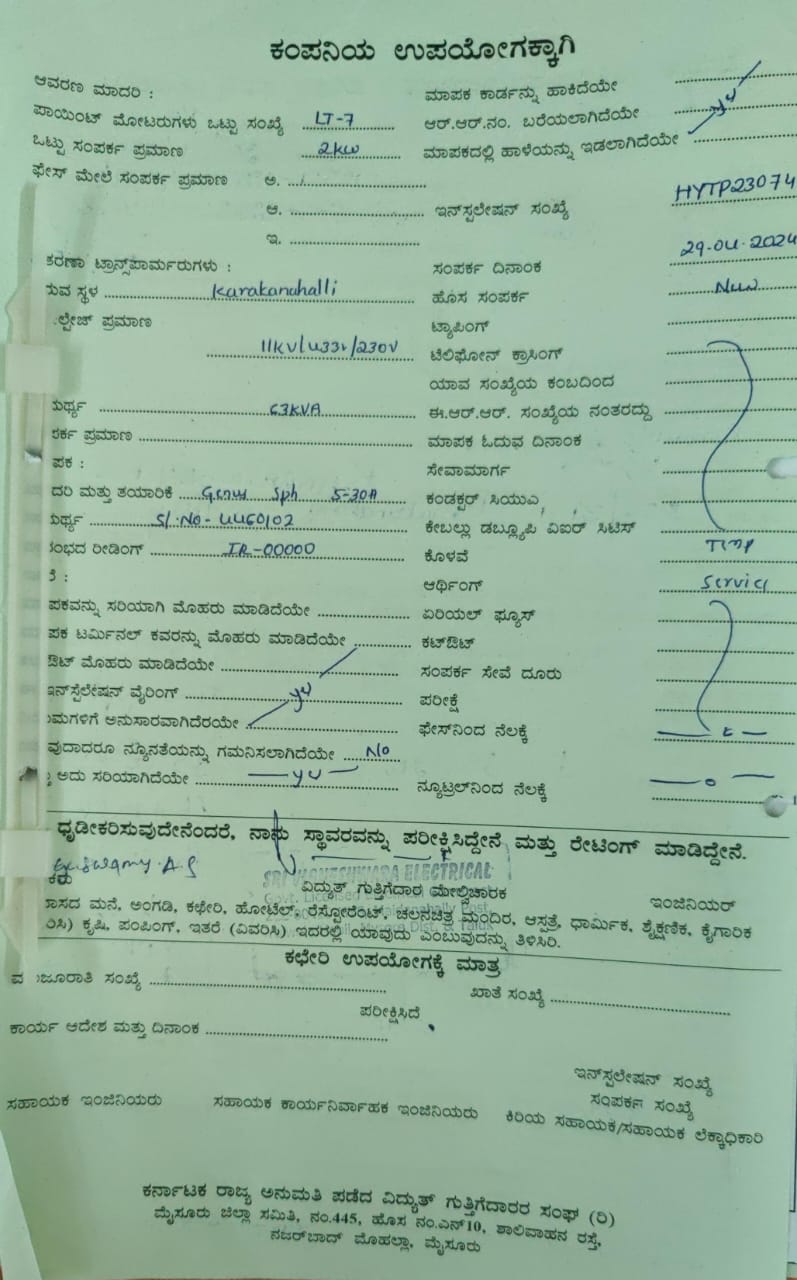 ಕಂಪನಿಯ ಉಪಯೋಗಕ್ಕಾಗಿ
ಆವರಣ ಮಾದರಿ :
ಮಾಪಕ ಕಾರ್ಡನ್ನು ಹಾಕಿದೆಯೇ
ಪಾಯಿಂಟ್ ಮೋಟರುಗಳು ಒಟ್ಟು ಸಂಖ್ಯೆ LT-7
ಆರ್.ಆರ್.ನಂ. ಬರೆಯಲಾಗಿದೆಯೇ
ಒಟ್ಟು ಸಂಪರ್ಕ ಪ್ರಮಾಣ 2KW
ಮಾಪಕದಲ್ಲಿ ಹಾಳೆಯನ್ನು ಇಡಲಾಗಿದೆಯೇ
ಫೇಸ್ ಮೇಲೆ ಸಂಪರ್ಕ ಪ್ರಮಾಣ ಅ.
ಆ.
ಇನ್‌ಸ್ಪಲೇಷನ್ ಸಂಖ್ಯೆ HYTP23074
ಇ.
ಕರಣಾ ಟ್ರಾನ್ಸ್‌ಪಾರ್ಮರುಗಳು :
ಸಂಪರ್ಕ ದಿನಾಂಕ 29-04-2024
ಸುವ ಸ್ಥಳ Karakanahalli
ಹೊಸ ಸಂಪರ್ಕ New
ಲ್ಟೇಜ್ ಪ್ರಮಾಣ
ಟ್ಯಾಪಿಂಗ್
11KV/433v/230V
ಟೆಲಿಫೋನ್ ಕ್ರಾಸಿಂಗ್
ಯಾವ ಸಂಖ್ಯೆಯ ಕಂಬದಿಂದ
ಮರ್ಥ್ಯ 63KVA
ಈ.ಆರ್.ಆರ್. ಸಂಖ್ಯೆಯ ನಂತರದ್ದು
ಪರ್ಕ ಪ್ರಮಾಣ
ಮಾಪಕ ಓದುವ ದಿನಾಂಕ
ಪಕ :
ಸೇವಾಮಾರ್ಗ
ದರಿ ಮತ್ತು ತಯಾರಿಕೆ Genus Sph 5-30A
ಕಂಡಕ್ಟರ್ ಸಿಯುಎ
ಮರ್ಥ್ಯ Sl.No- 4460102
ಕೇಬಲ್ಲು ಡಬ್ಲ್ಯೂಪಿ ವಿಐರ್ ಸಿಟಿಸ್
ರಂಭದ ರೀಡಿಂಗ್ IR-00000
ಕೊಳವೆ Temp
ಆರ್ಥಿಂಗ್ Service
ಪಕವನ್ನು ಸರಿಯಾಗಿ ಮೊಹರು ಮಾಡಿದೆಯೇ
ಏರಿಯಲ್ ಫ್ಯೂಸ್
ಪಕ ಟರ್ಮಿನಲ್ ಕವರನ್ನು ಮೊಹರು ಮಾಡಿದೆಯೇ
ಕಟ್‌ಔಟ್
ಔಟ್ ಮೊಹರು ಮಾಡಿದೆಯೇ
ಸಂಪರ್ಕ ಸೇವೆ ದೂರು
ಇನ್‌ಸ್ಪೆಲೇಷನ್ ವೈರಿಂಗ್
ಪರೀಕ್ಷೆ
ಯಮಗಳಿಗೆ ಅನುಸಾರವಾಗಿದೆರಯೇ
ಫೇಸ್‌ನಿಂದ ನೆಲಕ್ಕೆ
ವುದಾದರೂ ನ್ಯೂನತೆಯನ್ನು ಗಮನಿಸಲಾಗಿದೆಯೇ No
ಅದು ಸರಿಯಾಗಿದೆಯೇ
ನ್ಯೂಟ್ರಲ್‌ನಿಂದ ನೆಲಕ್ಕೆ
ಧೃಡೀಕರಿಸುವುದೇನೆಂದರೆ, ನಾನು ಸ್ಥಾವರವನ್ನು ಪರೀಕ್ಷಿಸಿದ್ದೇನೆ ಮತ್ತು ರೇಟಿಂಗ್ ಮಾಡಿದ್ದೇನೆ.
ELECTRICAL
ವಿದ್ಯುತ್ ಗುತ್ತಿಗೆದಾರ ಮೇಲ್ವಿಚಾರಕ
ಇಂಜಿನಿಯರ್
ವಾಸದ ಮನೆ, ಅಂಗಡಿ, ಕಛೇರಿ, ಹೋಟೆಲ್, ರೆಸ್ಟೋರೆಂಟ್, ಚಲನಚಿತ್ರ ಮಂದಿರ, ಆಸ್ಪತ್ರೆ, ಧಾರ್ಮಿಕ, ಶೈಕ್ಷಣಿಕ, ಕೈಗಾರಿಕ
ರಿಸಿ) ಕೃಷಿ, ಪಂಪಿಂಗ್, ಇತರೆ (ವಿವರಿಸಿ) ಇದರಲ್ಲಿ ಯಾವುದು ಎಂಬುವುದನ್ನು ತಿಳಿಸಿರಿ.
ಕಛೇರಿ ಉಪಯೋಗಕ್ಕೆ ಮಾತ್ರ
ಮಂಜೂರಾತಿ ಸಂಖ್ಯೆ
ಖಾತೆ ಸಂಖ್ಯೆ
ಪರೀಕ್ಷಿಸಿದೆ
ಕಾರ್ಯ ಆದೇಶ ಮತ್ತು ದಿನಾಂಕ
ಇನ್‌ಸ್ಪಲೇಷನ್ ಸಂಖ್ಯೆ
ಸಂಪರ್ಕ ಸಂಖ್ಯೆ
ಸಹಾಯಕ ಇಂಜಿನಿಯರು
ಸಹಾಯಕ ಕಾರ್ಯನಿರ್ವಾಹಕ ಇಂಜಿನಿಯರು
ಕಿರಿಯ ಸಹಾಯಕ/ಸಹಾಯಕ ಲೆಕ್ಕಾಧಿಕಾರಿ
ಕರ್ನಾಟಕ ರಾಜ್ಯ ಅನುಮತಿ ಪಡೆದ ವಿದ್ಯುತ್ ಗುತ್ತಿಗೆದಾರರ ಸಂಘ (ರಿ)
ಮೈಸೂರು ಜಿಲ್ಲಾ ಸಮಿತಿ, ನಂ.445, ಹೊಸ ನಂ.ಎನ್10, ಶಾಲಿವಾಹನ ರಸ್ತೆ,
ನಜರ್‌ಬಾದ್ ಮೊಹಲ್ಲಾ, ಮೈಸೂರು